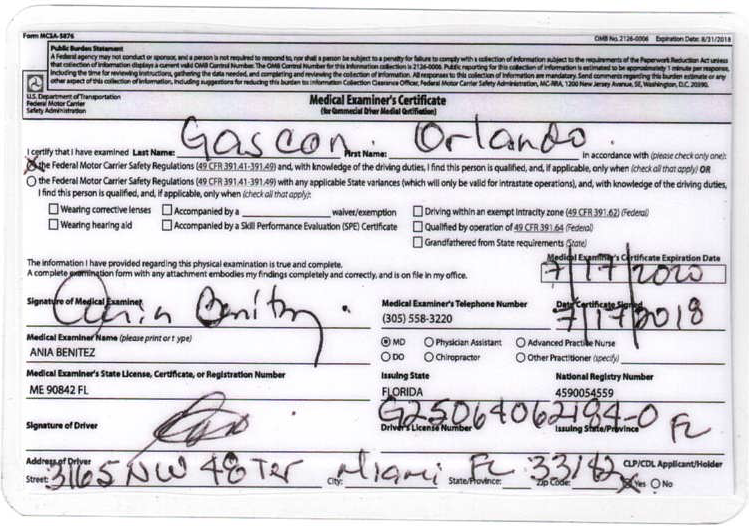 Form MCSA-5876 OMB No. 2126-0006 Expiration Date: 8/31/2018
Public Burden Statement
A Federal agency may not conduct or sponsor, and a person is not required to respond to, nor shall a person be subject to a penalty for failure to comply with a collection of information subject to the requirements of the Paperwork Reduction Act unless
that collection of information displays a current valid OMB Control Number. The OMB Control Number for this information collection is 2126-0006. Public reporting for this collection of information is estimated to be approximately 1 minute per response,
including the time for reviewing instructions, gathering the data needed, and completing and reviewing the collection of information. All responses to this collection of information are mandatory. Send comments regarding this burden estimate or any
other aspect of this collection of information, including suggestions for reducing this burden to: Information Collection Clearance Officer, Federal Motor Carrier Safety Administration, MC-RRA, 1200 New Jersey Avenue, SE, Washington, D.C. 20590.
U.S. Department of Transportation
Federal Motor Carrier
Safety Administration
Medical Examiner's Certificate
(for Commercial Driver Medical Certification)
I certify that I have examined Last Name: Gascon First Name: Orlando in accordance with (please check only one):
the Federal Motor Carrier Safety Regulations (49 CFR 391.41-391.49) and, with knowledge of the driving duties, I find this person is qualified, and, if applicable, only when (check all that apply) OR
the Federal Motor Carrier Safety Regulations (49 CFR 391.41-391.49) with any applicable State variances (which will only be valid for intrastate operations), and, with knowledge of the driving duties,
I find this person is qualified, and, if applicable, only when (check all that apply):
Wearing corrective lenses Accompanied by a waiver/exemption Driving within an exempt intracity zone (49 CFR 391.62) (Federal)
Wearing hearing aid Accompanied by a Skill Performance Evaluation (SPE) Certificate Qualified by operation of 49 CFR 391.64 (Federal)
Grandfathered from State requirements (State)
The information I have provided regarding this physical examination is true and complete.
A complete examination form with any attachment embodies my findings completely and correctly, and is on file in my office.
Medical Examiner's Certificate Expiration Date
7/17/2020
Signature of Medical Examiner Ania Benitez
Medical Examiner's Telephone Number
(305) 558-3220
Date Certificate Signed
7/17/2018
Medical Examiner Name (please print or type)
ANIA BENITEZ
MD Physician Assistant Advanced Practice Nurse
DO Chiropractor Other Practitioner (specify)
Medical Examiner's State License, Certificate, or Registration Number
ME 90842 FL
Issuing State
FLORIDA
National Registry Number
4590054559
Signature of Driver
G25064062184-0 FL
Driver's License Number Issuing State/Province
Address of Driver
Street: 3165 NW 48 Ter City: Miami State/Province: FL Zip Code: 33182
CLP/CDL Applicant/Holder
Yes No